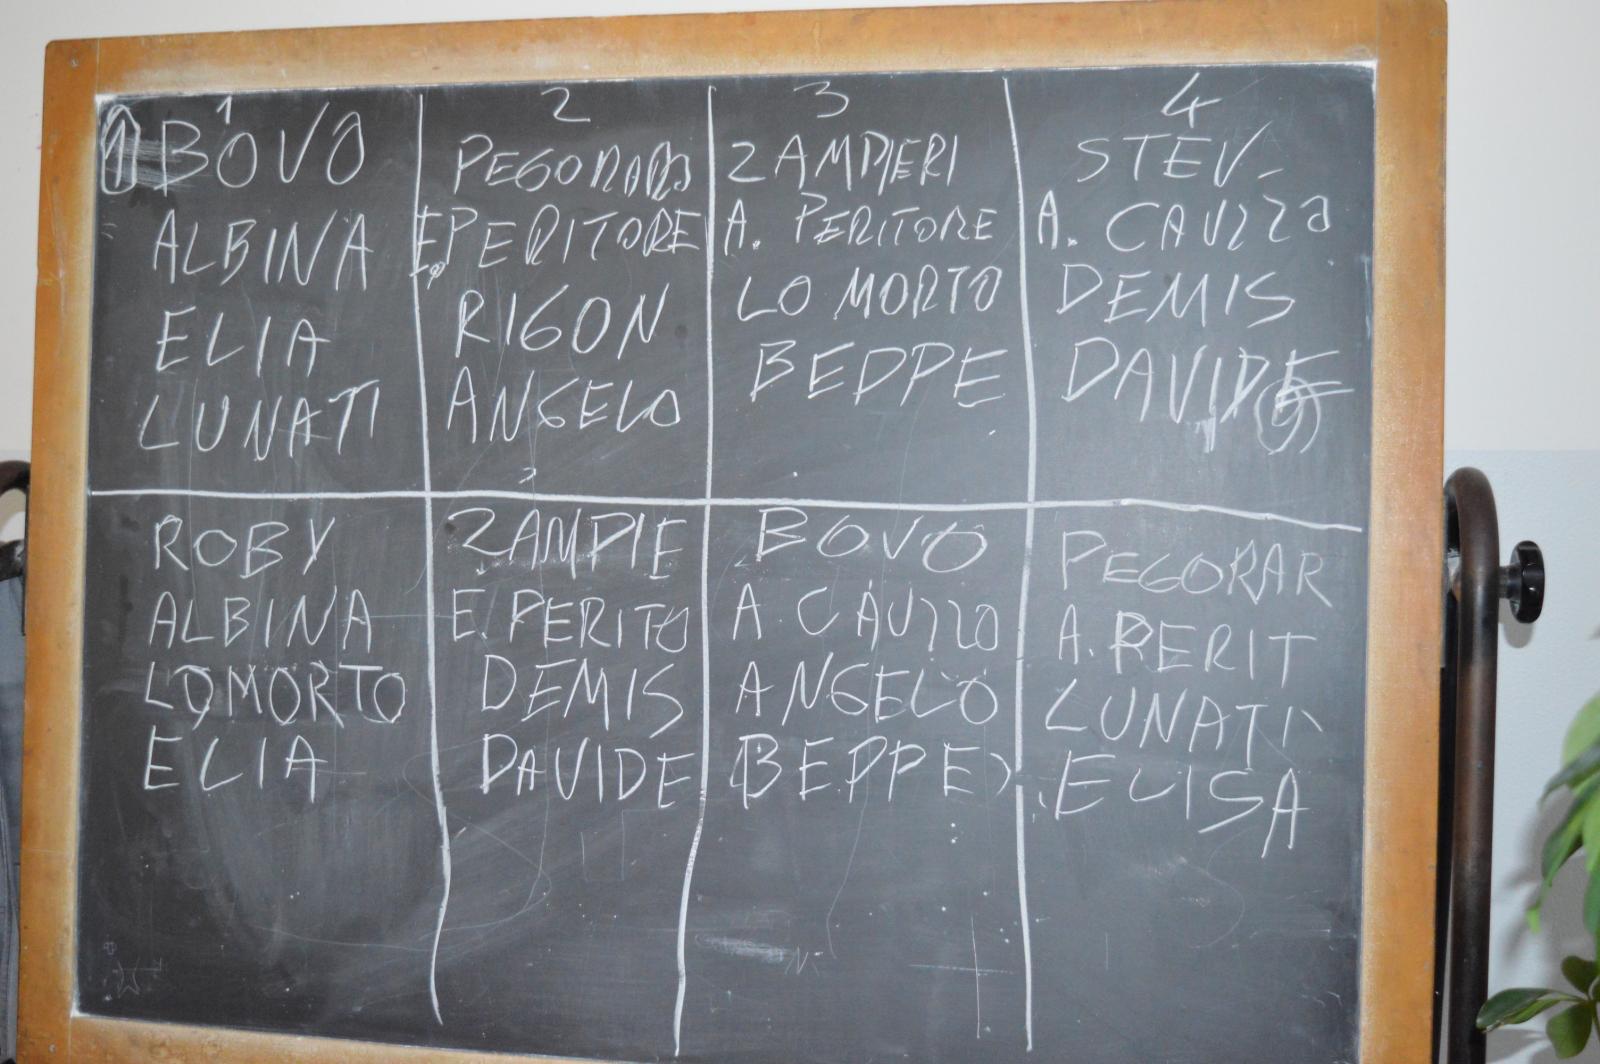 1
BOVO
ALBINA
ELIA
LUNATI
2
PEGORARO
E. PERITORE
RIGON
ANGELO
3
ZAMPIERI
A. PERITORE
LO MORTO
BEPPE
4
STEV.
A. CAUZZO
DEMIS
DAVIDE
ROBY
ALBINA
LOMORTO
ELIA
ZAMPIE
E. PERITO
DEMIS
DAVIDE
BOVO
A. CAUZZO
ANGELO
(BEPPE)
PEGORAR
A. PERIT
LUNATI
ELISA